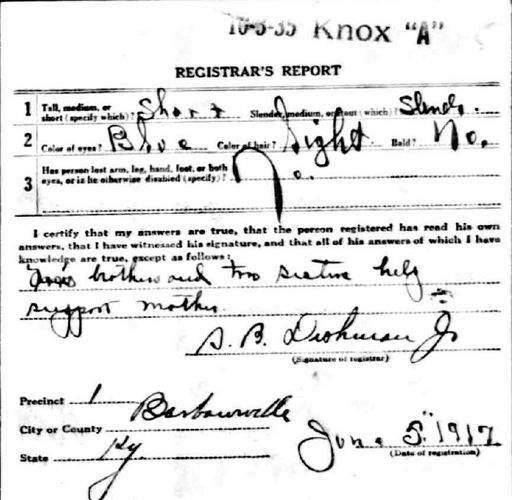 10-5-35 Knox "A"
REGISTRAR'S REPORT
1 Tall, medium, or short (specify which)? Short Slender, medium, or stout (which)? Slender.
2 Color of eyes? Blue Color of hair? Light Bald? No.
3 Has person lost arm, leg, hand, foot, or both
eyes, or is he otherwise disabled (specify)? No.
I certify that my answers are true, that the person registered has read his own
answers, that I have witnessed his signature, and that all of his answers of which I have
knowledge are true, except as follows:
brothers and two sisters help
support mother.
S. B. Dishman Jr
(Signature of registrar)
Precinct 1
City or County Barbourville
State Ky.
June 5. 1917
(Date of registration)